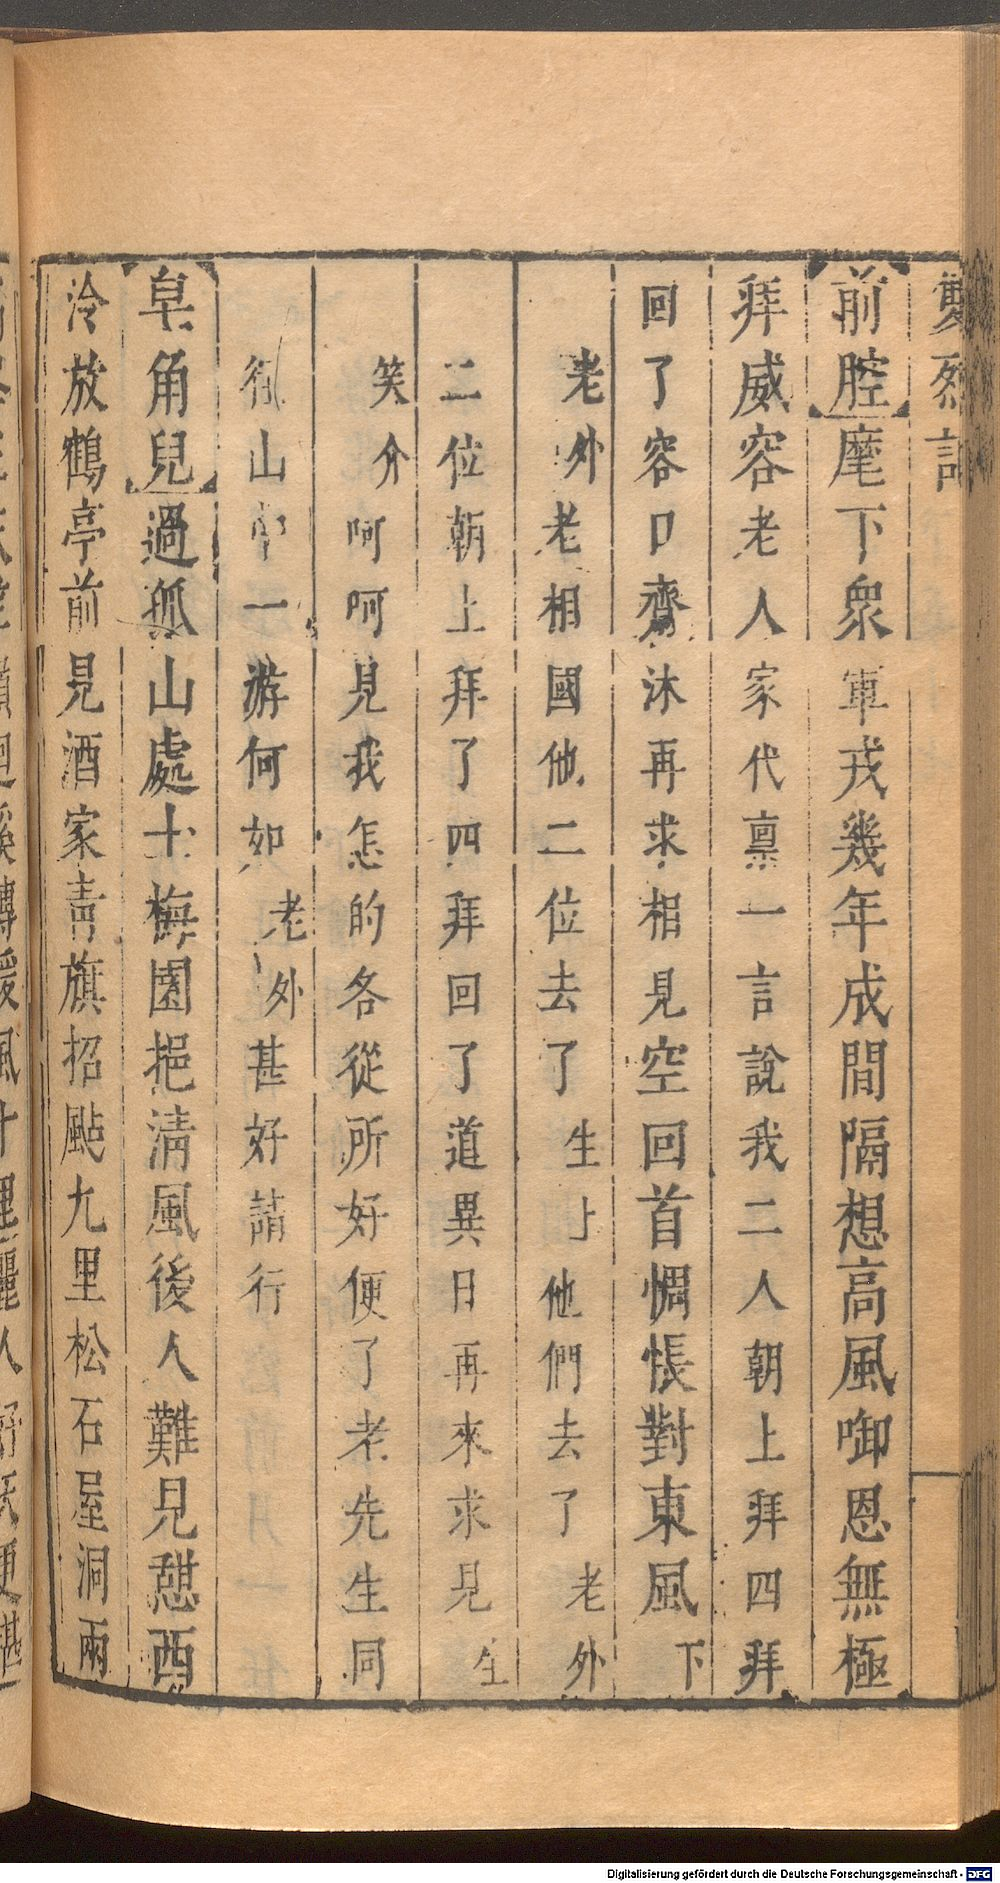 雙烈記
前腔麾下衆軍戎幾年成間隔想高風啣恩無極
拜威容老人家代禀一言說我二人朝上拜四拜
回了容口齋沐再求相見空回首惆悵對東風下
老外老相國他二位去了生上他們去了老外
二位朝上拜了四拜回了道異日再來求見生
笑介呵呵見我怎的各從所好便了老先生同
往山中一游何如老外甚好請行
皁角兒過孤山處士梅園挹清風後人難見憇西
泠放鶴亭前見酒家青旗招颭九里松石屋洞兩
Digitalisierung gefördert durch die Deutsche Forschungsgemeinschaft - DFG